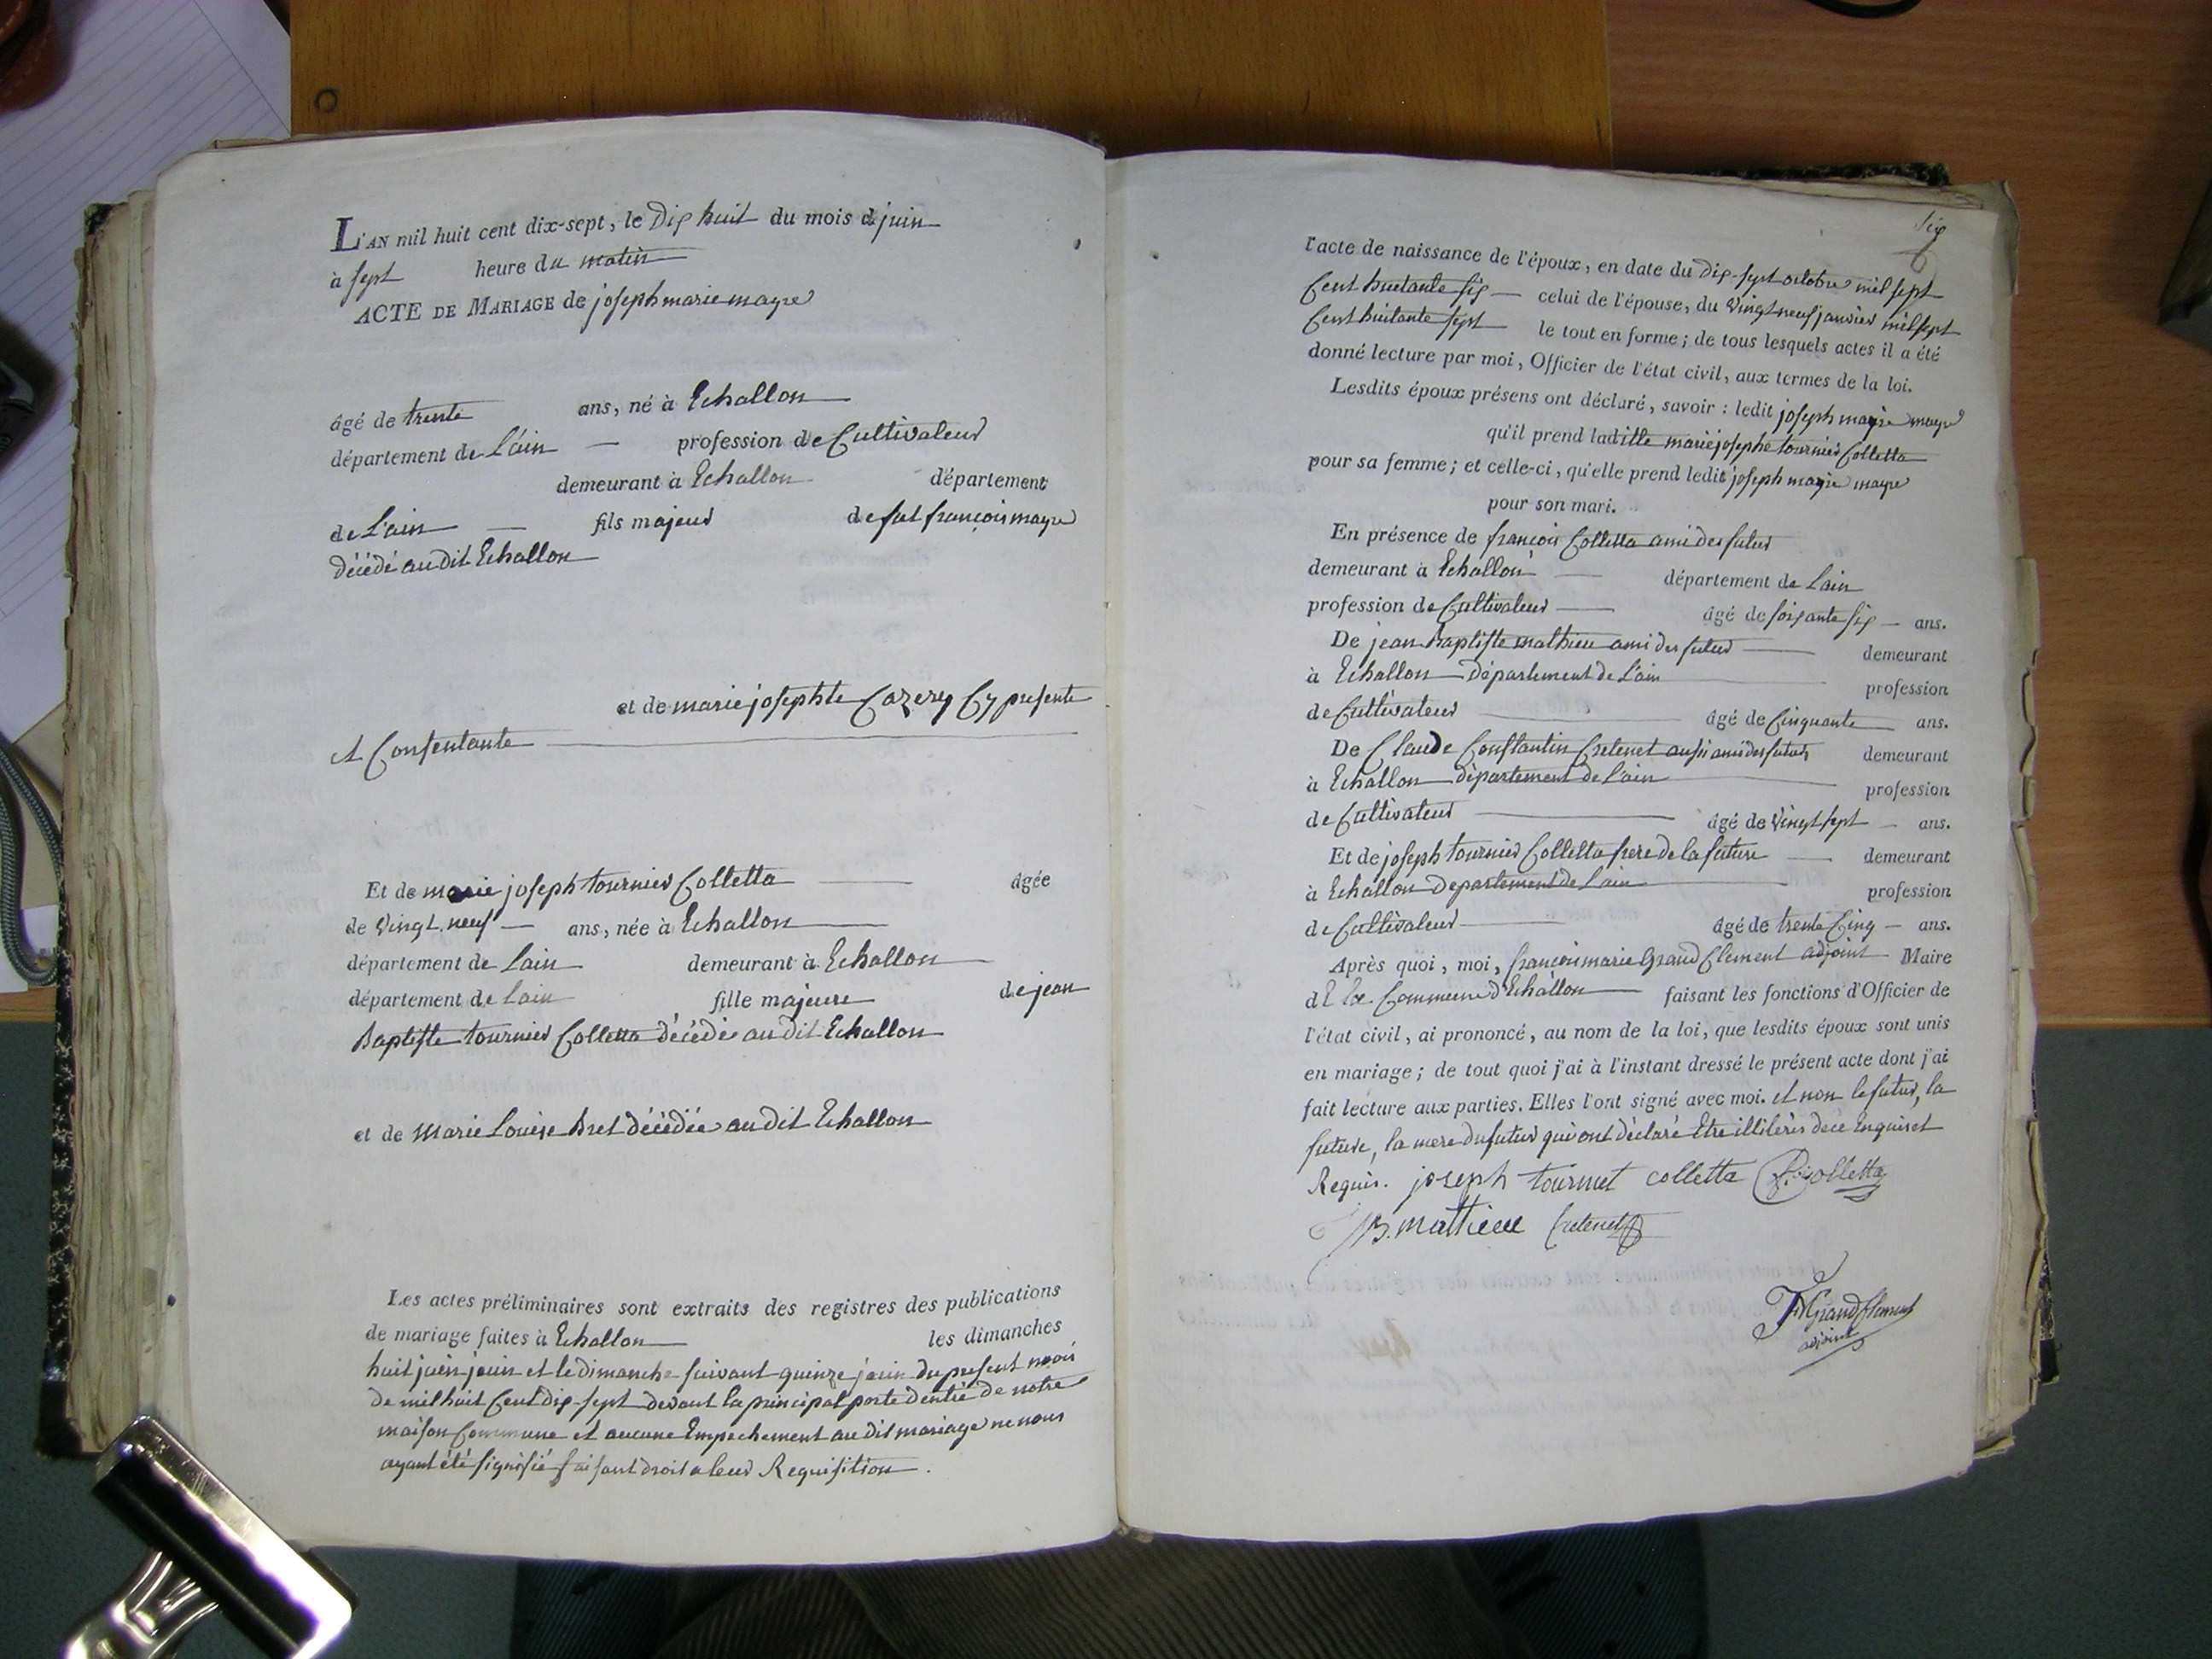 L'AN mil huit cent dix-sept, le Dix huit du mois de juin
à sept heure du matin
ACTE DE MARIAGE de joseph marie mayre
âgé de trente ans, né à Echallon
département de L'ain profession de Cultivateur
demeurant à Echallon département
de L'ain fils majeur de fut françois mayre
décédé au dit Echallon
et de marie josephte Cazery Cy presente
et Consentante
Et de marie joseph tournier Colletta âgée
de vingt-neuf ans, née à Echallon
département de Lain demeurant à Echallon
département de Lain fille majeure de jean
Baptiste tournier Colletta décédé au dit Echallon
et de Marie Louise Bret décédée au dit Echallon
Les actes préliminaires sont extraits des registres des publications
de mariage faites à Echallon les dimanches
huit juin juin et le dimanche suivant quinze juin du present mois
de mil huit Cent dix-sept devant la principal porte d'entré de notre
maison Commune et aucune Empechement au dit mariage ne nous
ayant été signifié faisant droit a leur Requisition.
six
l'acte de naissance de l'époux, en date du dix-sept octobre mil sept
Cent huitante six celui de l'épouse, du vingt neuf janvier mil sept
Cent huitante sept le tout en forme; de tous lesquels actes il a été
donné lecture par moi, Officier de l'état civil, aux termes de la loi.
Lesdits époux présens ont déclaré, savoir: ledit joseph mayre
qu'il prend ladille marie josephe tournier Colletta
pour sa femme; et celle-ci, qu'elle prend ledit joseph mayre
pour son mari.
En présence de françois Colletta ami des futur
demeurant à Echallon département de Lain
profession de Cultivateur âgé de soixante six ans.
De jean Baptiste mathieu ami des futur demeurant
à Echallon département de L'ain profession
de Cultivateur âgé de Cinquante ans.
De Claude Constantin Cretenet aussi ami des futurs demeurant
à Echallon département de l'ain profession
de Cultivateur âgé de vingt sept ans.
Et de joseph tournier Colletta frere de la future demeurant
à Echallon département de Lain profession
de Cultivateur âgé de trente Cinq ans.
Après quoi, moi, françois marie Grand Clement adjoint Maire
de la Commune d'Echallon faisant les fonctions d'Officier de
l'état civil, ai prononcé, au nom de la loi, que lesdits époux sont unis
en mariage; de tout quoi j'ai à l'instant dressé le présent acte dont j'ai
fait lecture aux parties. Elles l'ont signé avec moi. et non le futur, la
future, la mere du futur qui ont déclaré Etre illiterés de ce Enquis et
Requis. joseph tournet colletta Colletta
JB. mathieu Cretenet
FM Grand Clement
adjoint